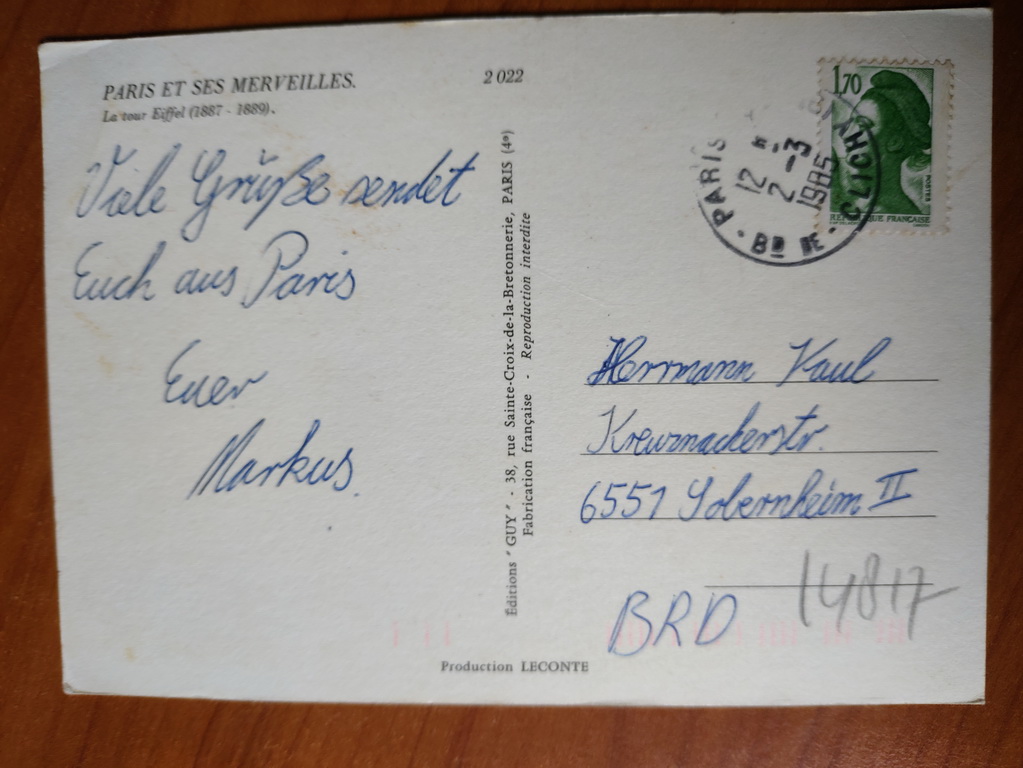 PARIS ET SES MERVEILLES.
2 022
La tour Eiffel (1887 - 1889).
Viele Grüße sendet
Euch aus Paris
Euer
Markus.
Éditions "GUY" - 38, rue Sainte-Croix-de-la-Bretonnerie, PARIS (4e)
Fabrication française - Reproduction interdite
1,70
RÉPUBLIQUE FRANÇAISE
POSTES
PARIS
12 H
2 - 3
1985
BD DE CLICHY
Herrmann Vaul
Kreuznackerstr.
6551 Sobernheim II
BRD
14817
Production LECONTE